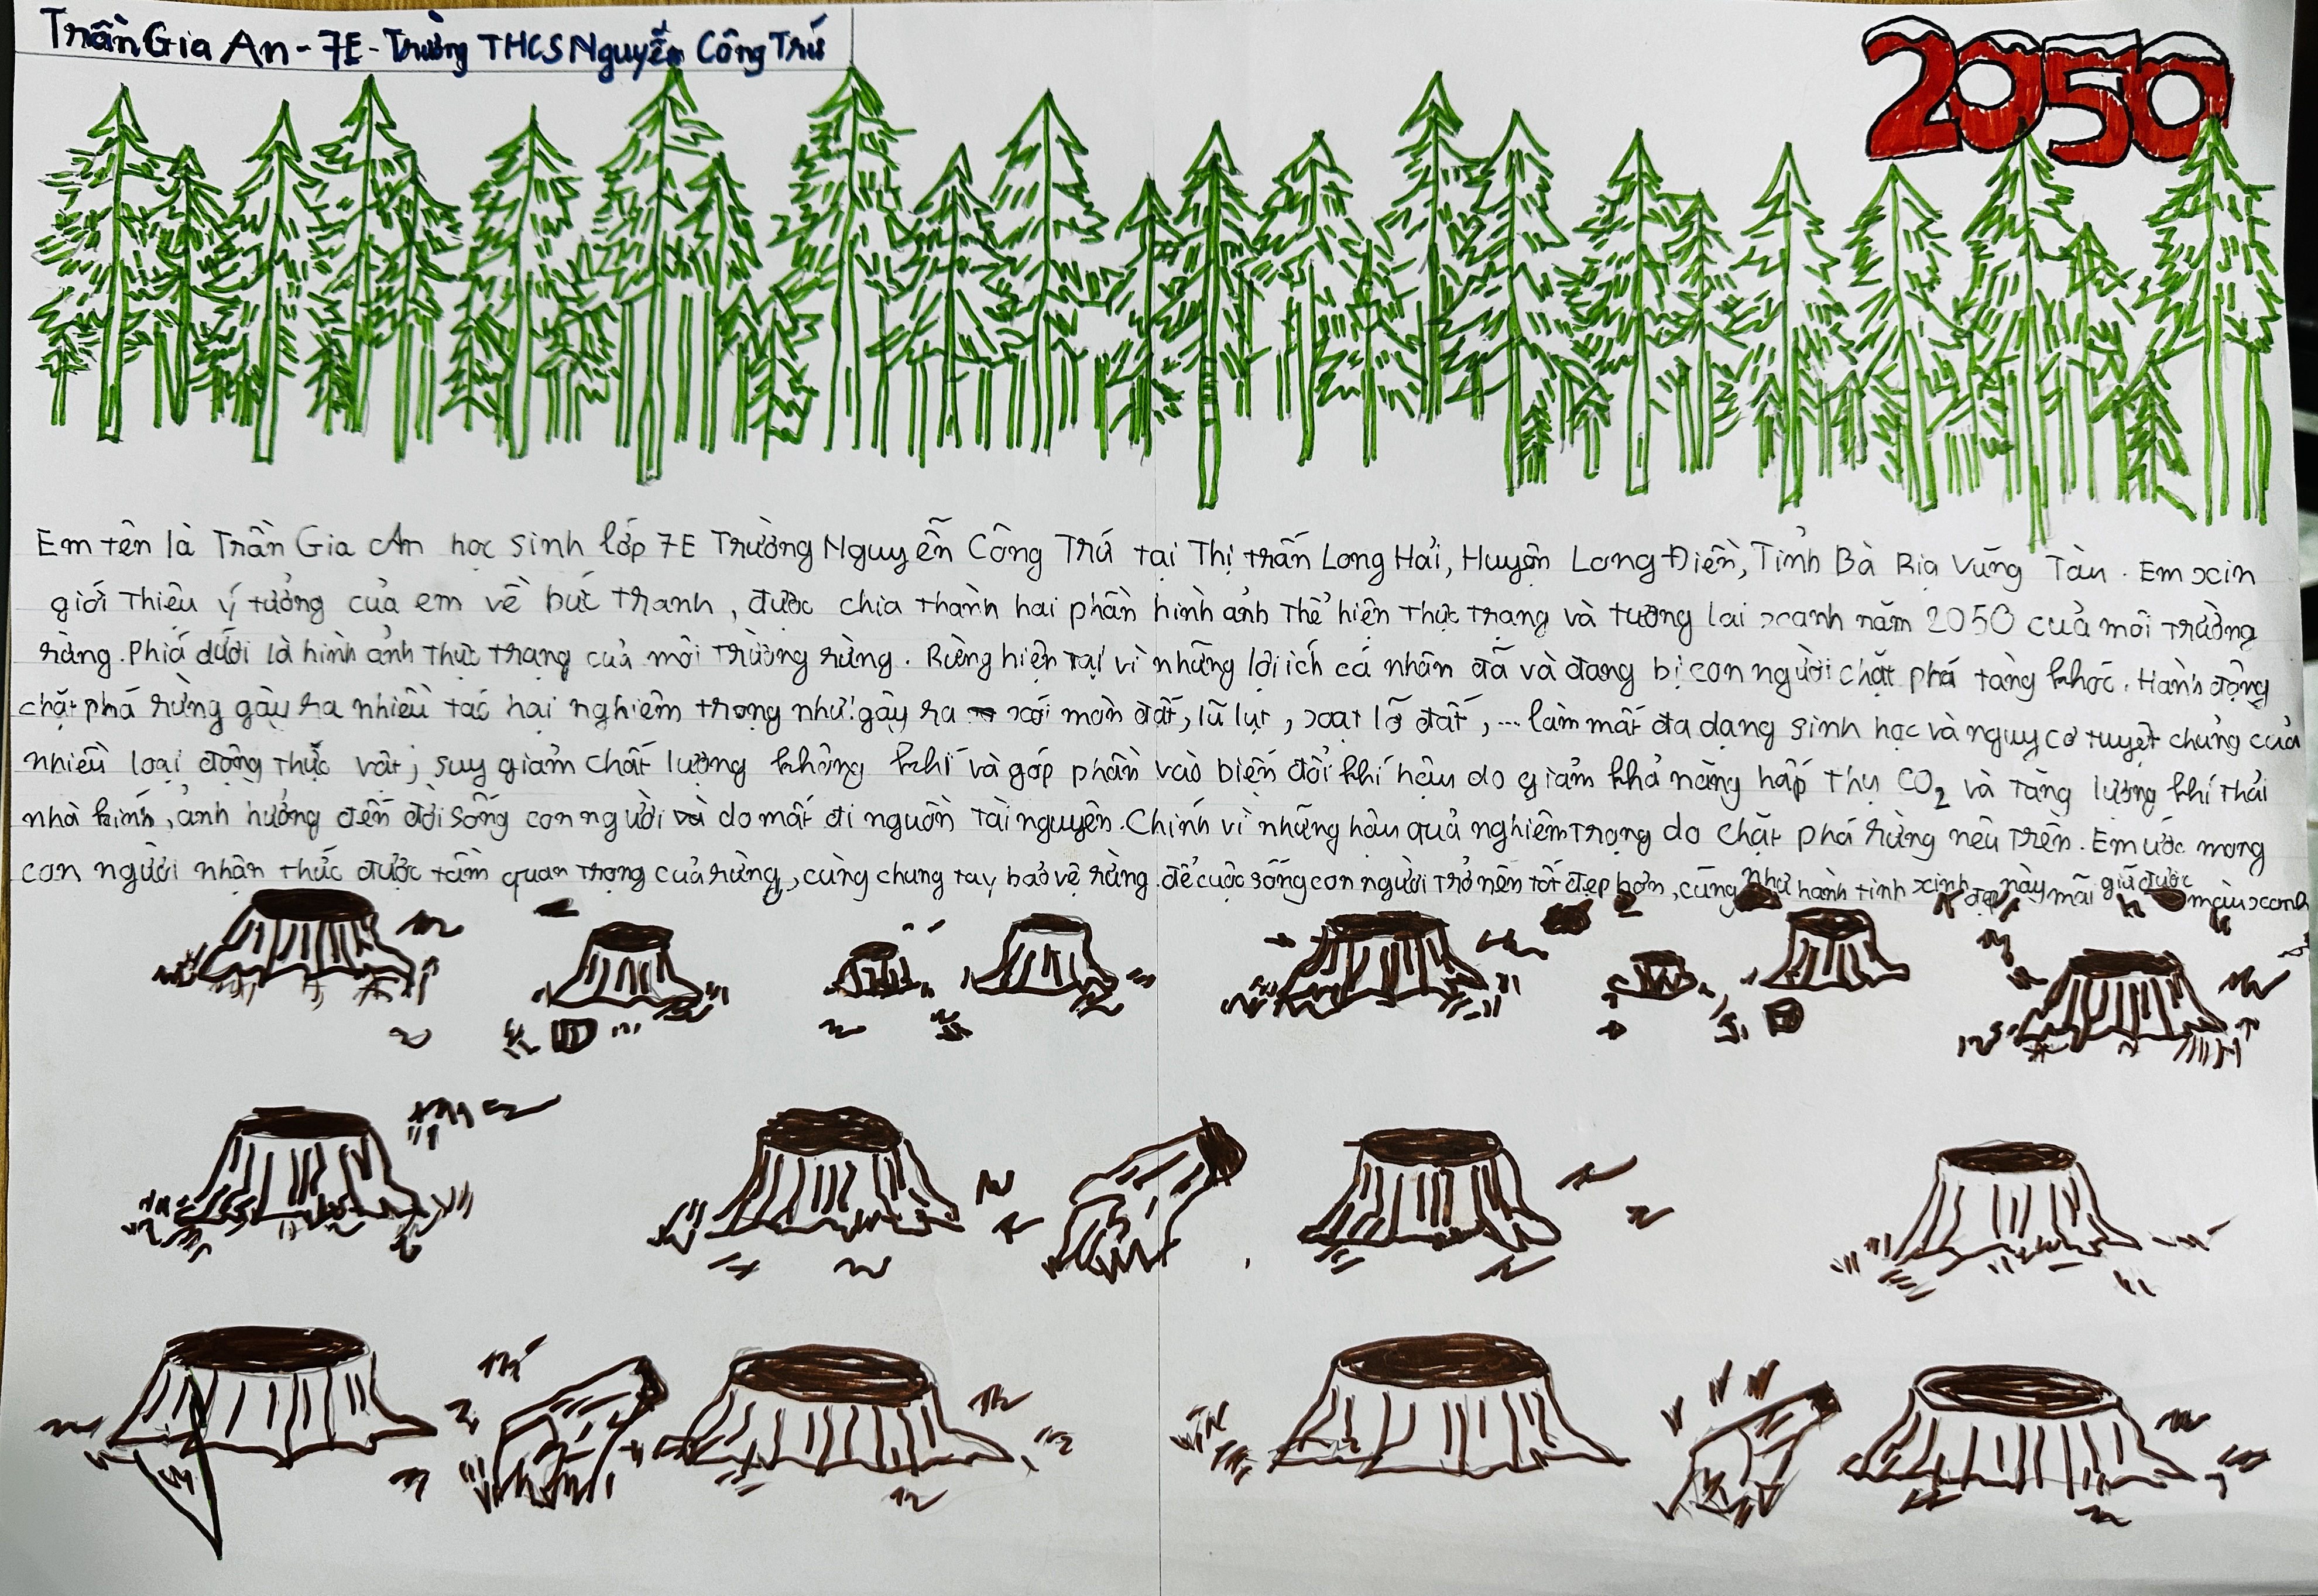 Trần Gia An - 7E - Trường THCS Nguyễn Công Trứ
2050
Em tên là Trần Gia An học sinh lớp 7E Trường Nguyễn Công Trứ tại Thị trấn Long Hải, Huyện Long Điền, Tỉnh Bà Rịa Vũng Tàu. Em xin
giới thiệu ý tưởng của em về bức tranh, được chia thành hai phần hình ảnh thể hiện thực trạng và tương lai xanh năm 2050 của môi trường
rừng. Phía dưới là hình ảnh thực trạng của môi trường rừng. Rừng hiện tại vì những lợi ích cá nhân đã và đang bị con người chặt phá tàng khốc. Hành động
chặt phá rừng gây ra nhiều tác hại nghiêm trọng như: gây ra xói mòn đất, lũ lụt, soạt lỡ đất, ... làm mất đa dạng sinh học và nguy cơ tuyệt chủng của
nhiều loại động thực vật; suy giảm chất lượng không khí và góp phần vào biến đổi khí hậu do giảm khả năng hấp thụ CO₂ và tăng lượng khí thải
nhà kính, ảnh hưởng đến đời sống con người do mất đi nguồn tài nguyên. Chính vì những hậu quả nghiêm trọng do chặt phá rừng nêu trên. Em ước mong
con người nhận thức được tầm quan trọng của rừng, cùng chung tay bảo vệ rừng để cuộc sống con người trở nên tốt đẹp hơn, cũng như hành tinh xinh đẹp này mãi giữ được màu xanh